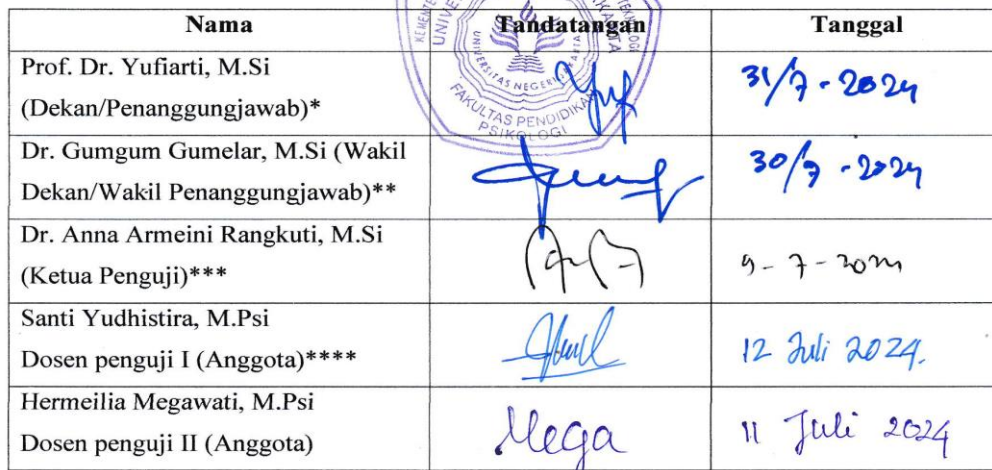 Nama Tandatangan Tanggal
Prof. Dr. Yufiarti, M.Si
(Dekan/Penanggungjawab)* 31/7-2024
Dr. Gumgum Gumelar, M.Si (Wakil
Dekan/Wakil Penanggungjawab)** 30/7-2024
Dr. Anna Armeini Rangkuti, M.Si
(Ketua Penguji)*** 9-7-2024
Santi Yudhistira, M.Psi
Dosen penguji I (Anggota)**** 12 Juli 2024.
Hermeilia Megawati, M.Psi
Dosen penguji II (Anggota) Mega 11 Juli 2024
UNIVERSITAS NEGERI
FAKULTAS PENDIDIKAN
PSIKOLOGI